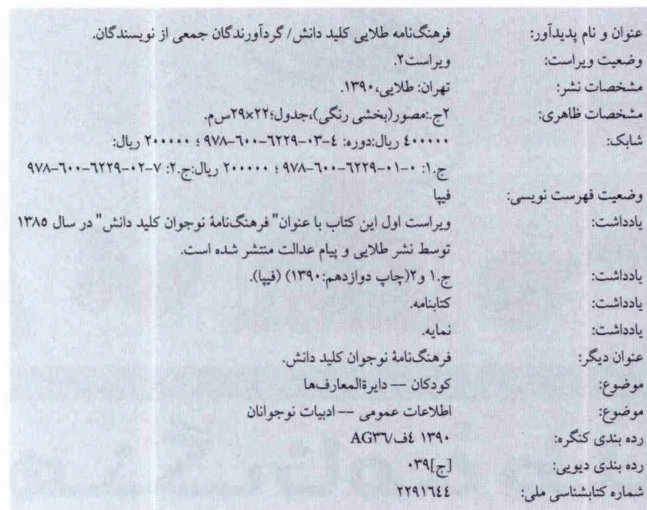 عنوان و نام پدیدآور: فرهنگ‌نامه طلایی کلید دانش/ گردآورندگان جمعی از نویسندگان.
وضعیت ویراست: ویراست۲.
مشخصات نشر: تهران: طلایی،۱۳۹۰.
مشخصات ظاهری: ۲ج.:مصور(بخشی رنگی)،جدول؛۲۲×۲۹س‌م.
شابک: ۴۰۰۰۰۰ ریال:دوره: ۴-۰۳-۶۲۲۹-۶۰۰-۹۷۸ ؛ ۲۰۰۰۰۰ ریال:
ج.۱: ۰-۰۱-۶۲۲۹-۶۰۰-۹۷۸ ؛ ۲۰۰۰۰۰ ریال:ج.۲: ۷-۰۲-۶۲۲۹-۶۰۰-۹۷۸
وضعیت فهرست نویسی: فیپا
یادداشت: ویراست اول این کتاب با عنوان" فرهنگ‌نامهٔ نوجوان کلید دانش" در سال ۱۳۸۵
توسط نشر طلایی و پیام عدالت منتشر شده است.
یادداشت: ج.۱ و۲(چاپ دوازدهم:۱۳۹۰) (فیپا).
یادداشت: کتابنامه.
یادداشت: نمایه.
عنوان دیگر: فرهنگ‌نامهٔ نوجوان کلید دانش.
موضوع: کودکان –– دایرةالمعارف‌ها
موضوع: اطلاعات عمومی –– ادبیات نوجوانان
رده بندی کنگره: ۱۳۹۰ ۴ف/AG۳۶
رده بندی دیویی: [ج]۰۳۹
شماره کتابشناسی ملی: ۲۲۹۱۶۴۴